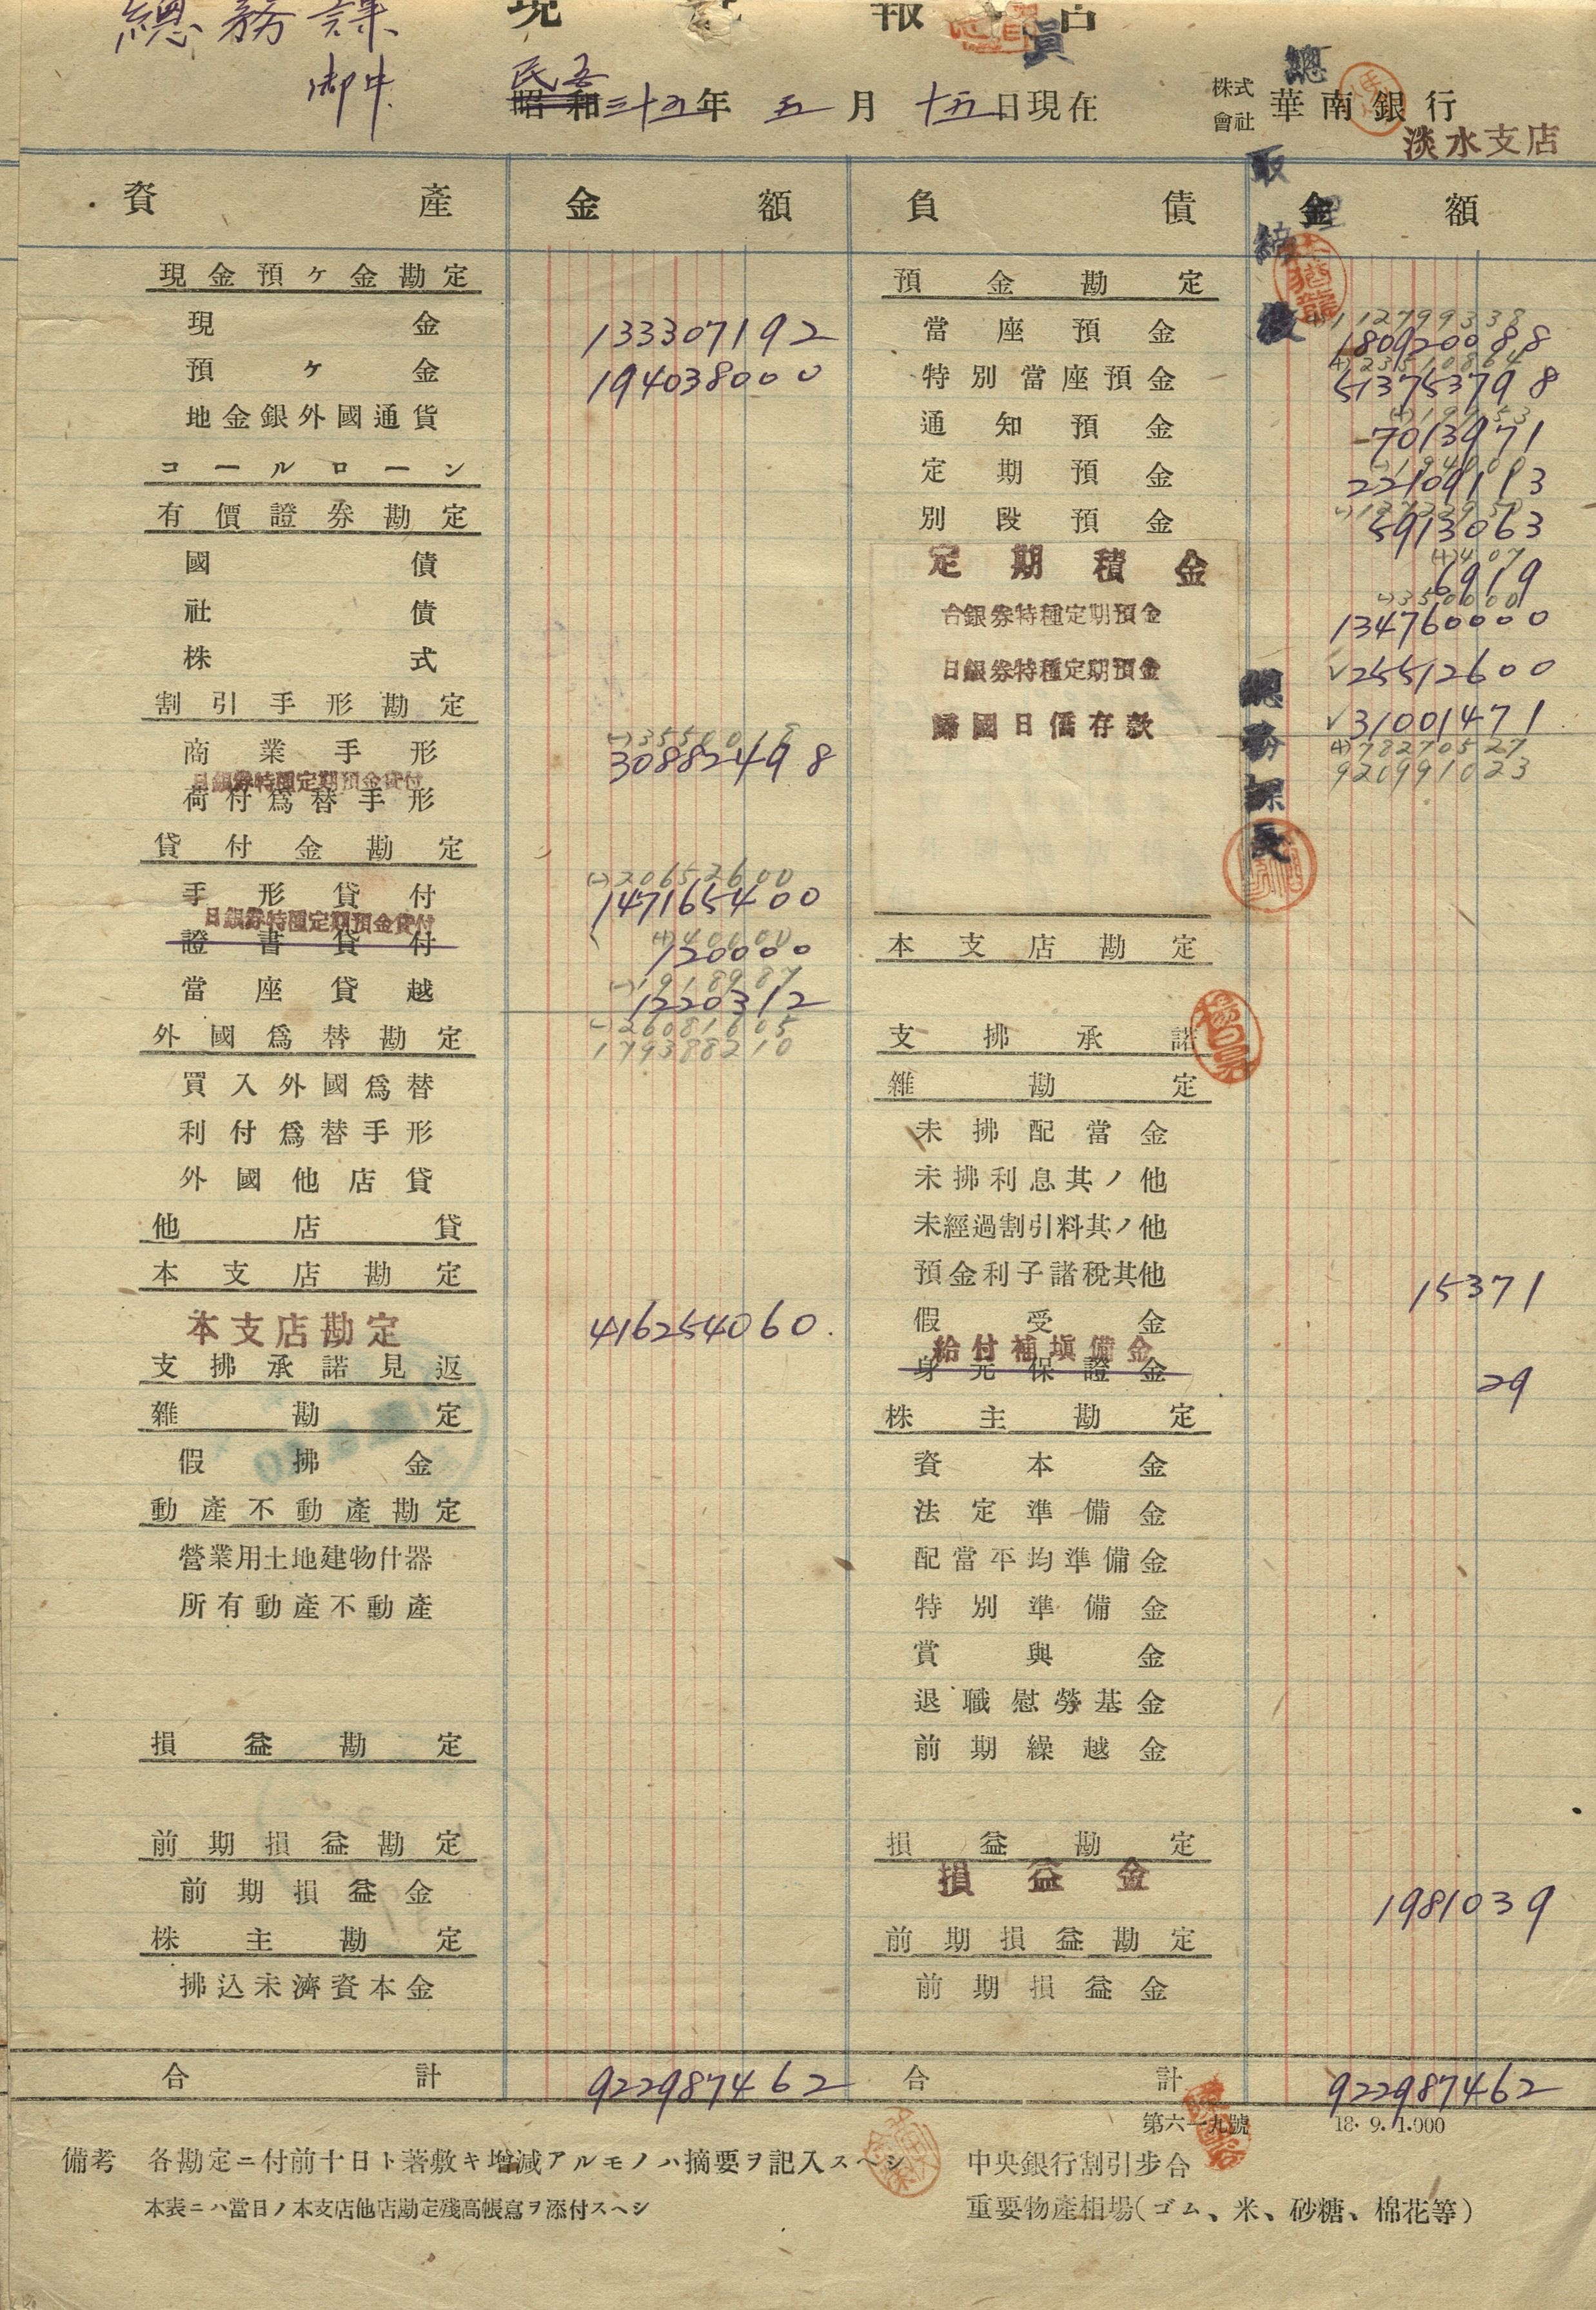 總務課
御中
現 報告
民國
昭和三十五年 五月 十五日現在
株式會社 華南銀行
淡水支店
資產 金額 負債 金額
現金預ヶ金勘定
現金 133307192
預ヶ金 194038000
地金銀外國通貨
コールローン
有價證券勘定
國債
社債
株式
割引手形勘定
商業手形 30882498
日銀券特種定期預金貸付
荷付爲替手形
貸付金勘定
(-)20652600
手形貸付 147165400
日銀券特種定期預金貸付
證書貸付
(+)40000
120000
(-)1918987
當座貸越 1220312
(-)26081605
179388210
外國爲替勘定
買入外國爲替
利付爲替手形
外國他店貸
他店貸
本支店勘定
本支店勘定 416254060
支拂承諾見返
雜勘定
假拂金
動產不動產勘定
營業用土地建物什器
所有動產不動產
損益勘定
前期損益勘定
前期損益金
株主勘定
拂込未濟資本金
合計 922987462
預金勘定
當座預金 180920088
特別當座預金 513753798
通知預金 7013971
定期預金 22109113
別段預金 5913063
定期積金 6919
台銀券特種定期預金 134760000
日銀券特種定期預金 25512600
歸國日僑存款 31001471
(+)78270527
920991023
本支店勘定
支拂承諾
雜勘定
未拂配當金
未拂利息其ノ他
未經過割引料其ノ他
預金利子諸稅其他 15371
假受金
給付補塡備金
身元保證金 29
株主勘定
資本金
法定準備金
配當平均準備金
特別準備金
賞與金
退職慰勞基金
前期繰越金
損益勘定
損益金 1981039
前期損益勘定
前期損益金
合計 922987462
總務課長
第六一九號 18.9.1.000
備考 各勘定ニ付前十日ト著敷キ增減アルモノハ摘要ヲ記入スヘシ
本表ニハ當日ノ本支店他店勘定殘高帳寫ヲ添付スヘシ
中央銀行割引步合
重要物產相場(ゴム、米、砂糖、棉花等)